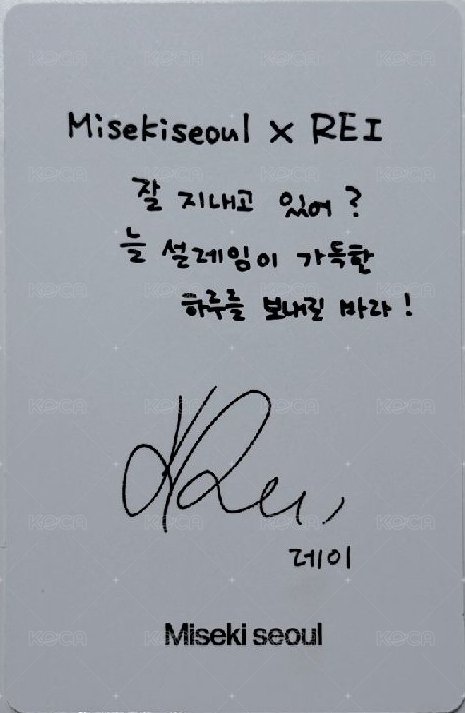 Misekiseoul X REI
잘 지내고 있어?
늘 설레임이 가득한
하루를 보내길 바라!
Rei
레이
Miseki seoul
KOCA